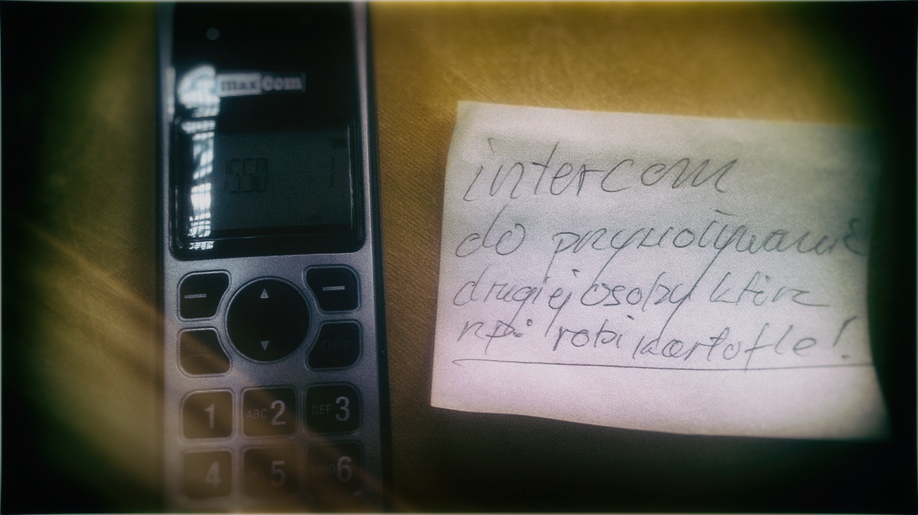 maxcom
1550 1
1
ABC 2
DEF 3
4
5
6
intercom
do przywoływania
drugiej osoby która
np. robi kartofle!